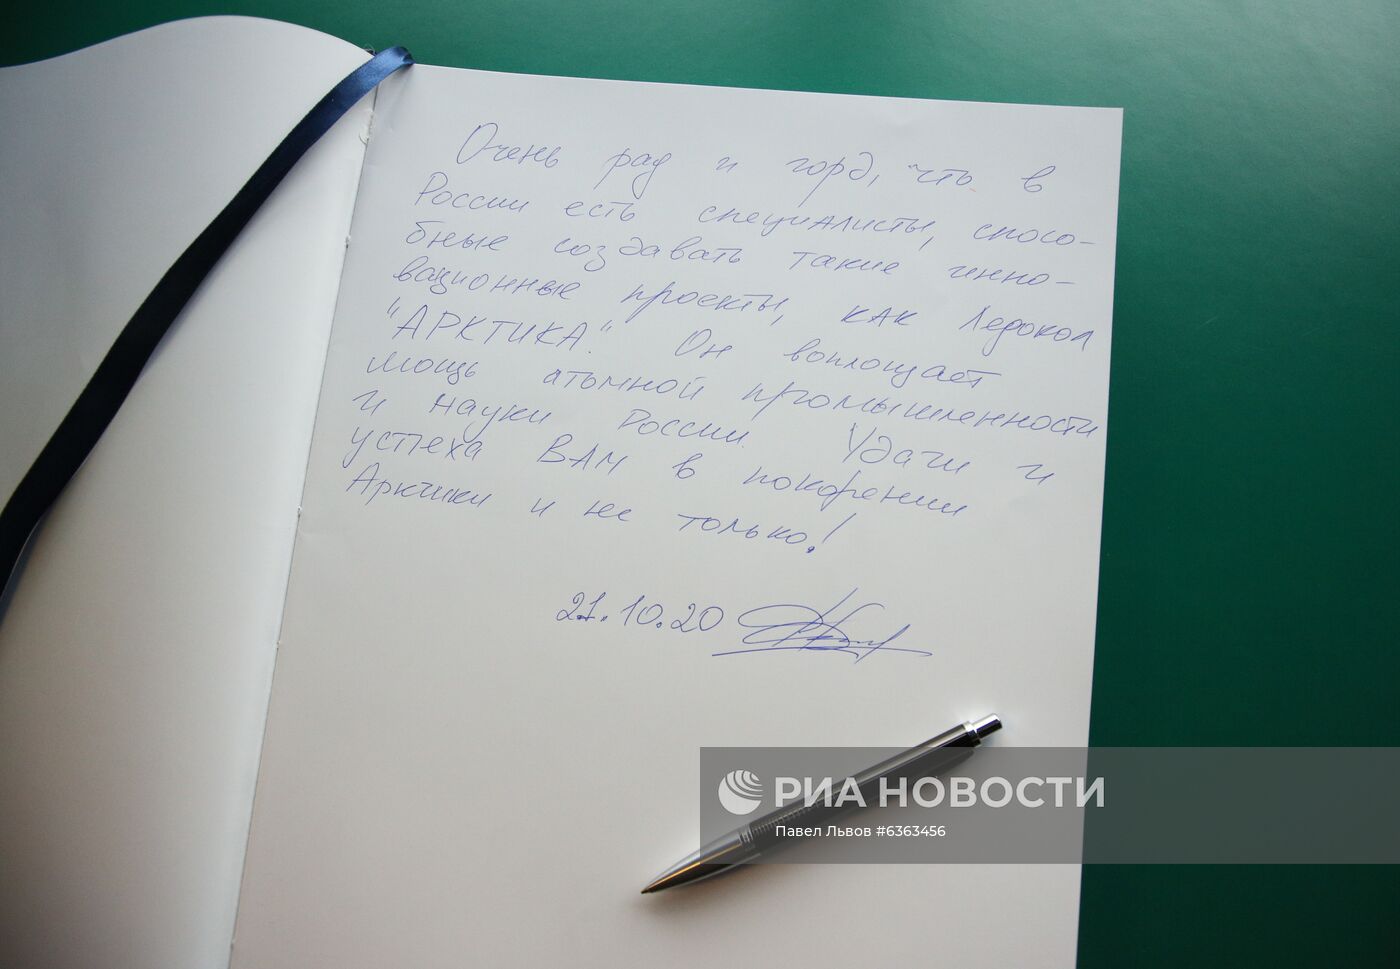 Очень рад и горд, что в
России есть специалисты, спосо-
бные создавать такие инно-
вационные проекты, как Ледокол
"АРКТИКА". Он воплощает
мощь атомной промышленности
и науки России. Удачи и
успеха ВАМ в покорении
Арктики и не только!
21.10.20
РИА НОВОСТИ
Павел Львов #6363456